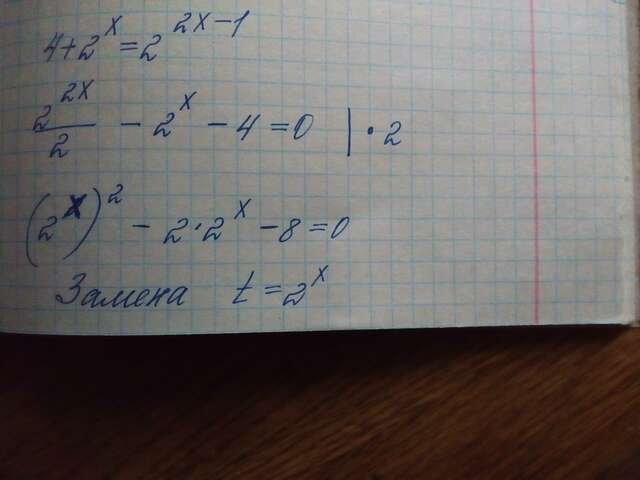 4+2^x=2^{2x-1}
2^{2x}/2 - 2^x - 4 = 0 | · 2
(2^x)^2 - 2·2^x - 8 = 0
Замена t = 2^x